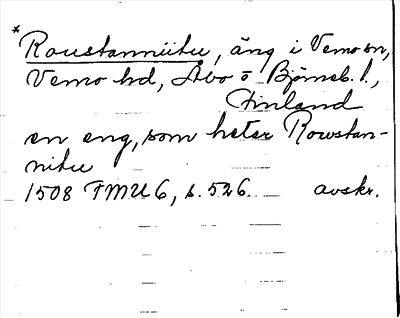 * Roustanniitu, äng i Vemo sn,
Vemo hd, Åbo o Björneb. l.,
Finland
en eng, som heter Rowstan-
nitu
1508 FMU 6, s. 526. avskr.